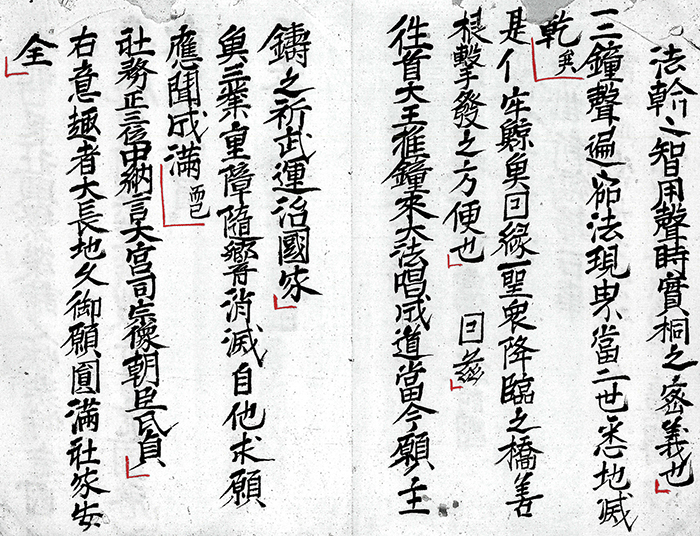 法輪之智用聲時實桐之密義也
三鐘聲遍法現界當二世悉地滅
乾
是牢鯨奧回緣一聖衆降臨之橋善
根擊發之方便也 回茲
往首大王推鐘來大法唱成道當今願主
鑄之祈武運治國家
奧三業重障隨響消滅自他求願
應聞成滿 而已
社務正三位中納言大宮司宗像朝臣氏貞
右意趣者大長地久御願圓滿社家安
全